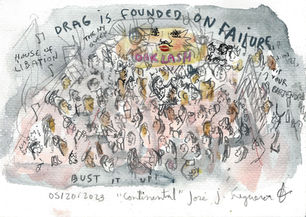 DRAG IS FOUNDED ON FAILURE
HOUSE OF
LIBATION
OAKLASH
YOUR
BUST IT UP!
05/20/2023 "Continental" José J.